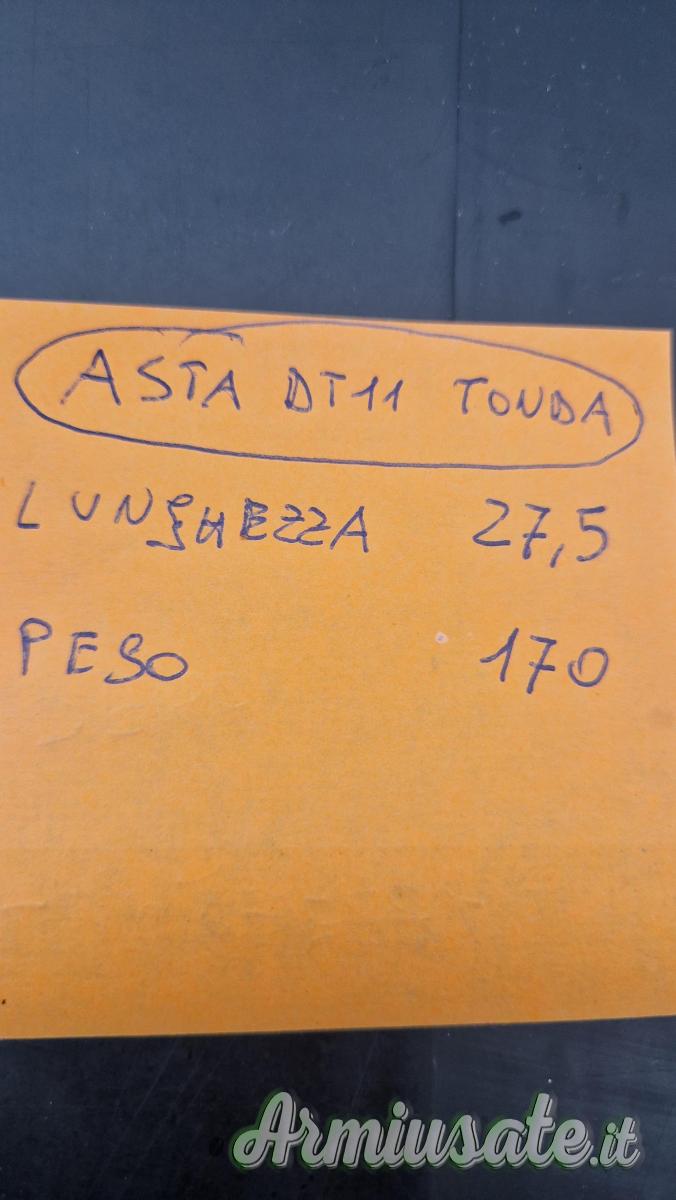 ASTA DT11 TONDA
LUNGHEZZA 27,5
PESO 170
Armiusate.it